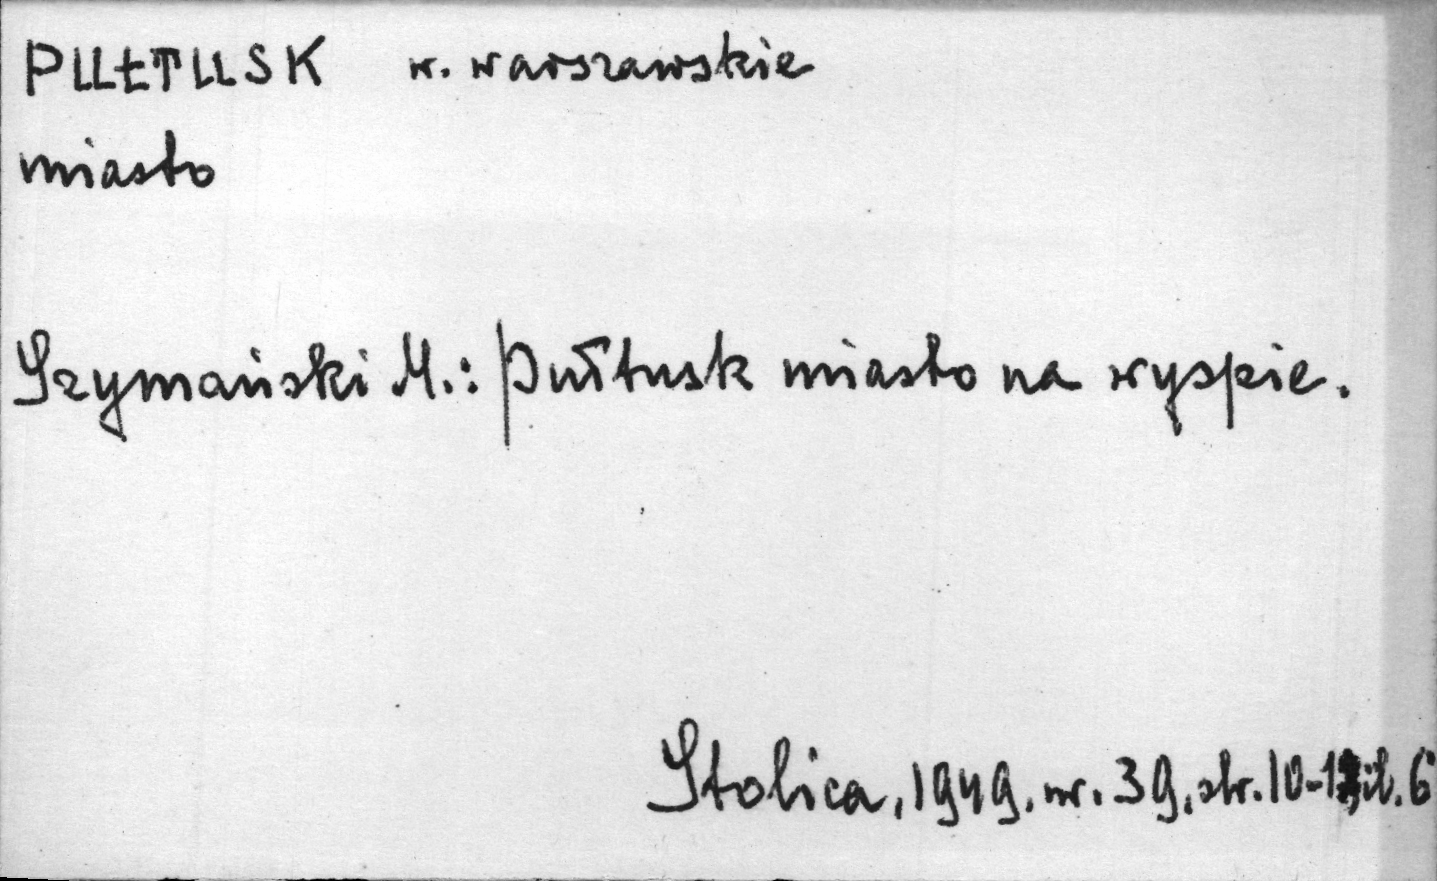 PUŁTUSK w. warszawskie
miasto
Szymański M.: Pułtusk miasto na wyspie.
Stolica, 1949, nr. 39, str. 10- il. 6